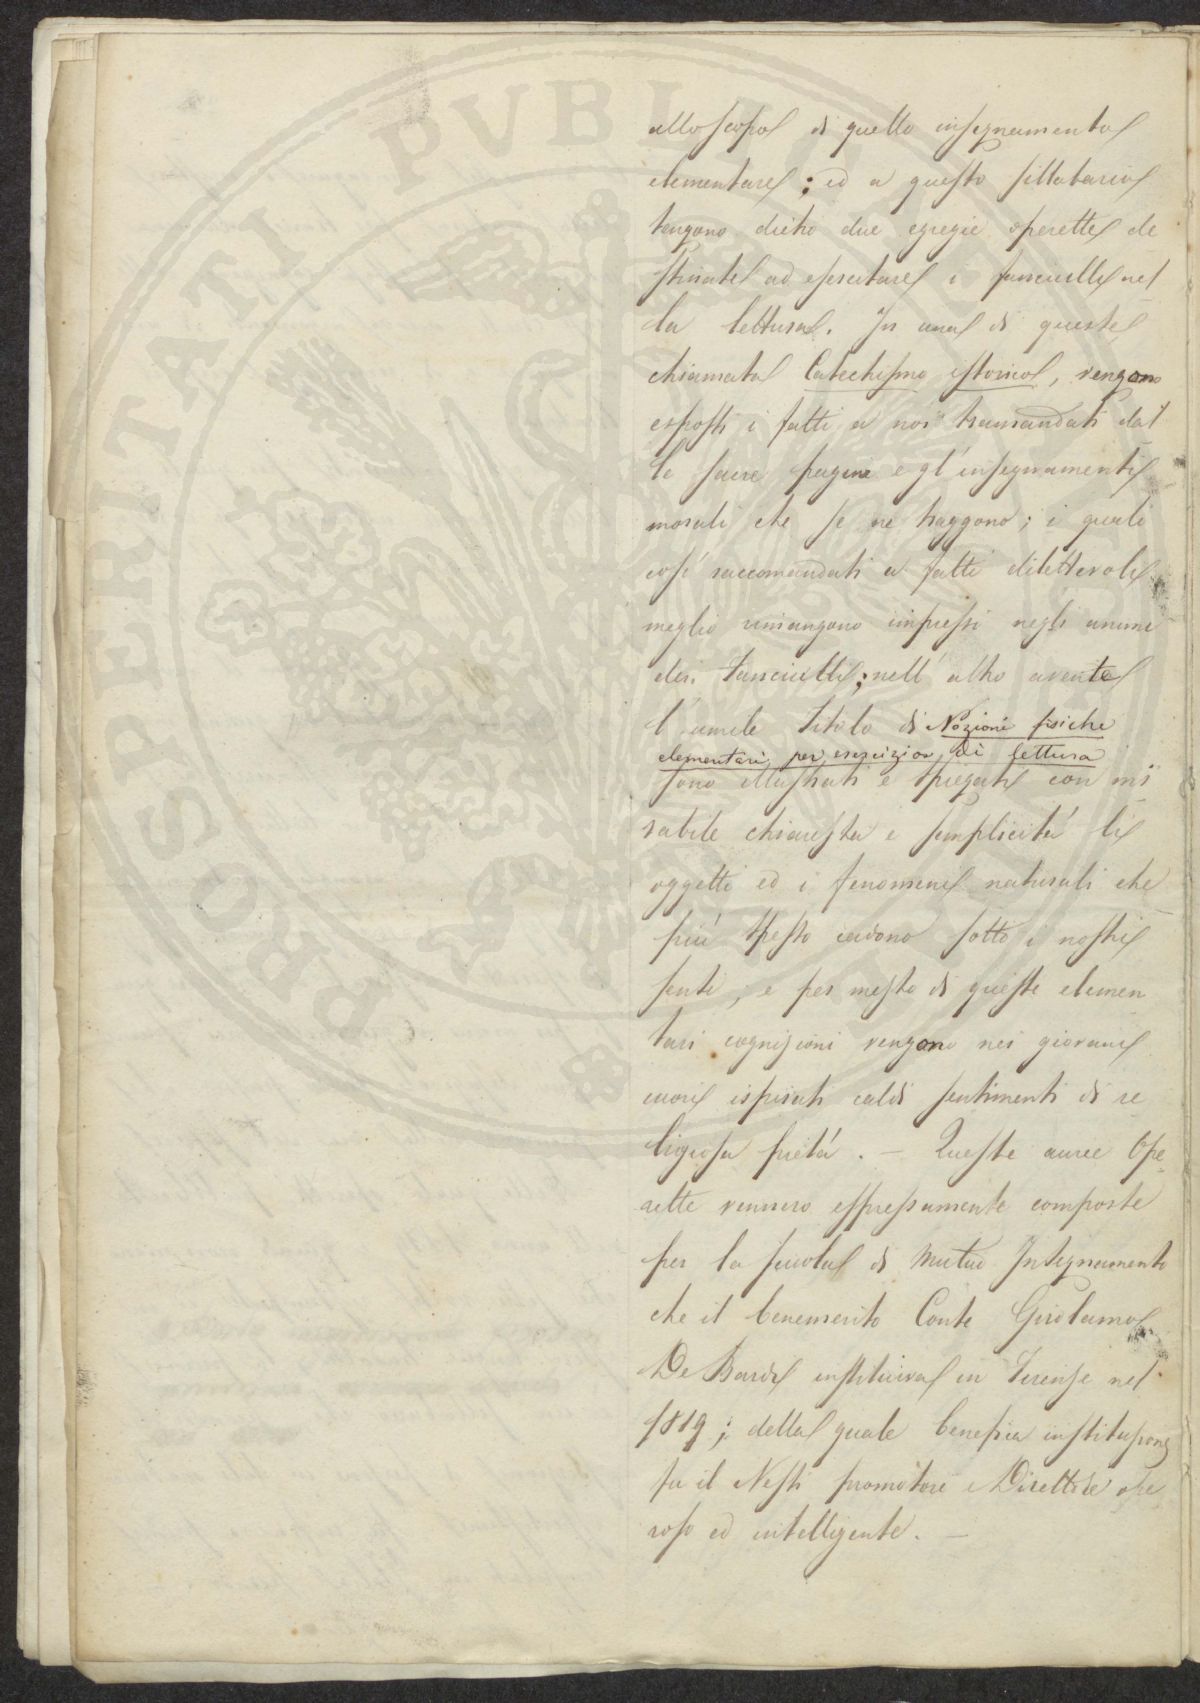 allo scopo di quello insegnamento
elementare; ed a questo sillabario
tengono dietro due egregie operette de
stinate ad esercitare i fanciulli nel
la lettura. In una di queste
chiamata Catechismo istorico, vengono
esposti i fatti a noi tramandati dal
le sacre pagine e gl'insegnamenti
morali che se ne traggono; i quali
così raccomandati a fatti dilettevoli
meglio rimangono impressi negli animi
dei fanciulli; nell'altro avente
l'umile titolo di Nozioni fisiche
elementari per esercizio di lettura
sono illustrati e spiegati con mi
rabile chiarezza e semplicitá li
oggetti ed i fenomeni naturali che
piú spesso cadono sotto i nostri
sensi, e per mezzo di queste elemen
tari cognizioni vengono nei giovani
cuori ispirati caldi sentimenti di re
ligiosa pietá. — Queste auree Ope
rette vennero espressamente composte
per la scuola di Mutuo Insegnamento
che il benemerito Conte Girolamo
De Bardi instituiva in Firenze nel
1819; della quale benefica instituzione
fu il Nesti promotore Direttore ope
roso ed intelligente. —
PROSPERITATI PVBLICAE